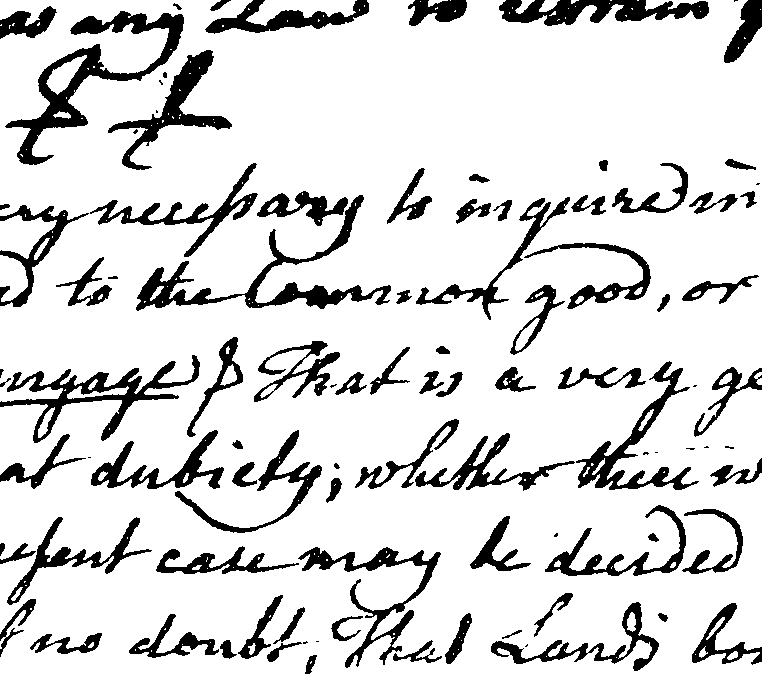 as any Law to restrain
ery necessary to inquire in
to the Common good, or
engage That is a very ge
at dubiety; whether there w
esent case may be decided
no doubt, That Lands bor